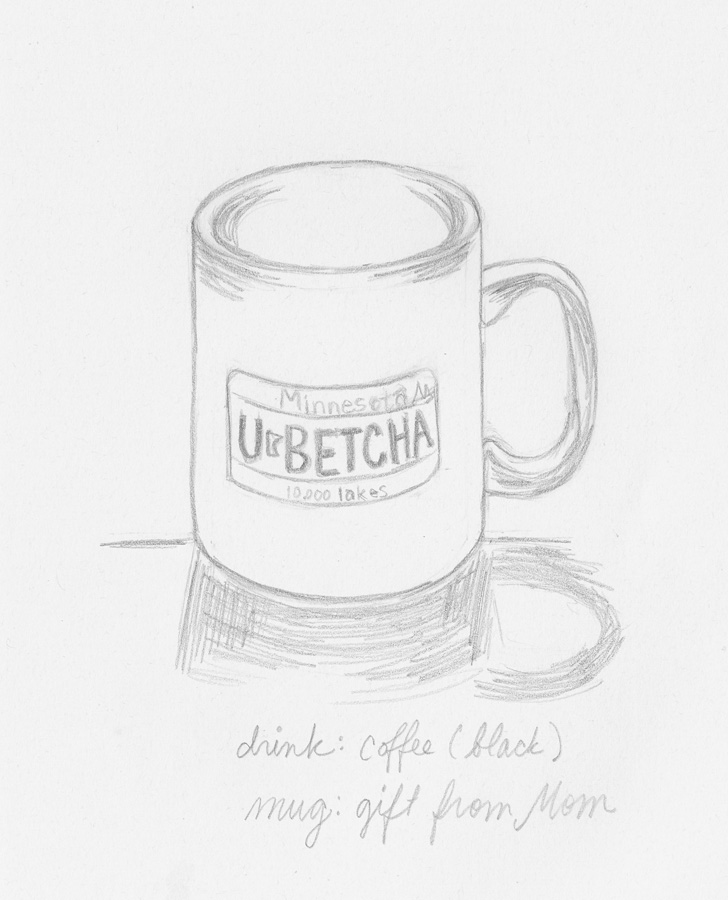 Minnesota
U BETCHA
10,000 lakes
drink: coffee (black)
mug: gift from Mom